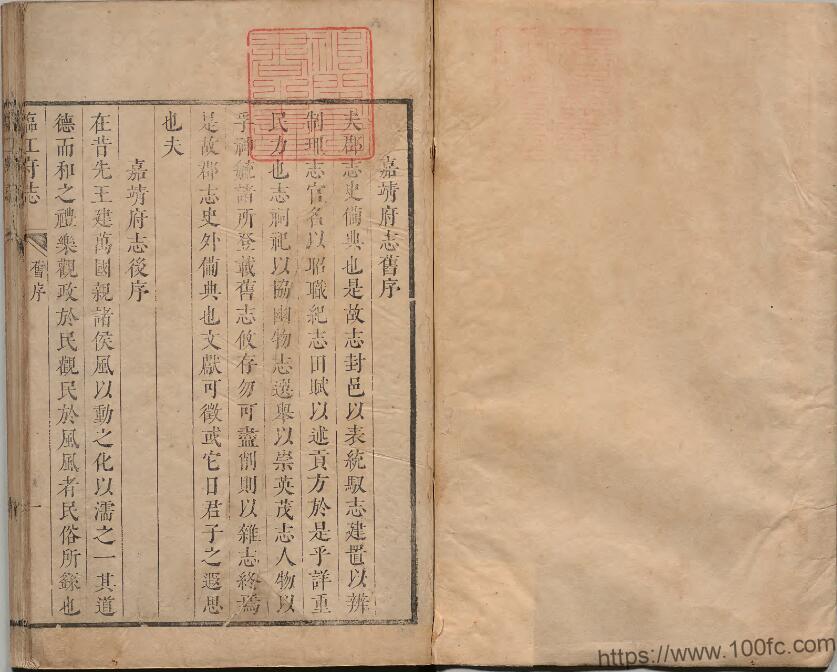 嘉靖府志舊序
夫郡志史備典也是故志封邑以表統馭志建置以辨
制理志官名以昭職紀志田賦以述貢方於是乎詳重
民力也志祠祀以協幽物志選舉以崇英茂志人物以
乎神統諸所登載舊志攸存勿可盡削則以雜志終焉
是故郡志史外備典也文獻可徵或它日君子之遐思
也夫
嘉靖府志後序
在昔先王建萬國親諸侯風以動之化以濡之一其道
德而和之禮樂觀政於民觀民於風風者民俗所繇也
臨江府志
舊序
一
https://www.100fc.com